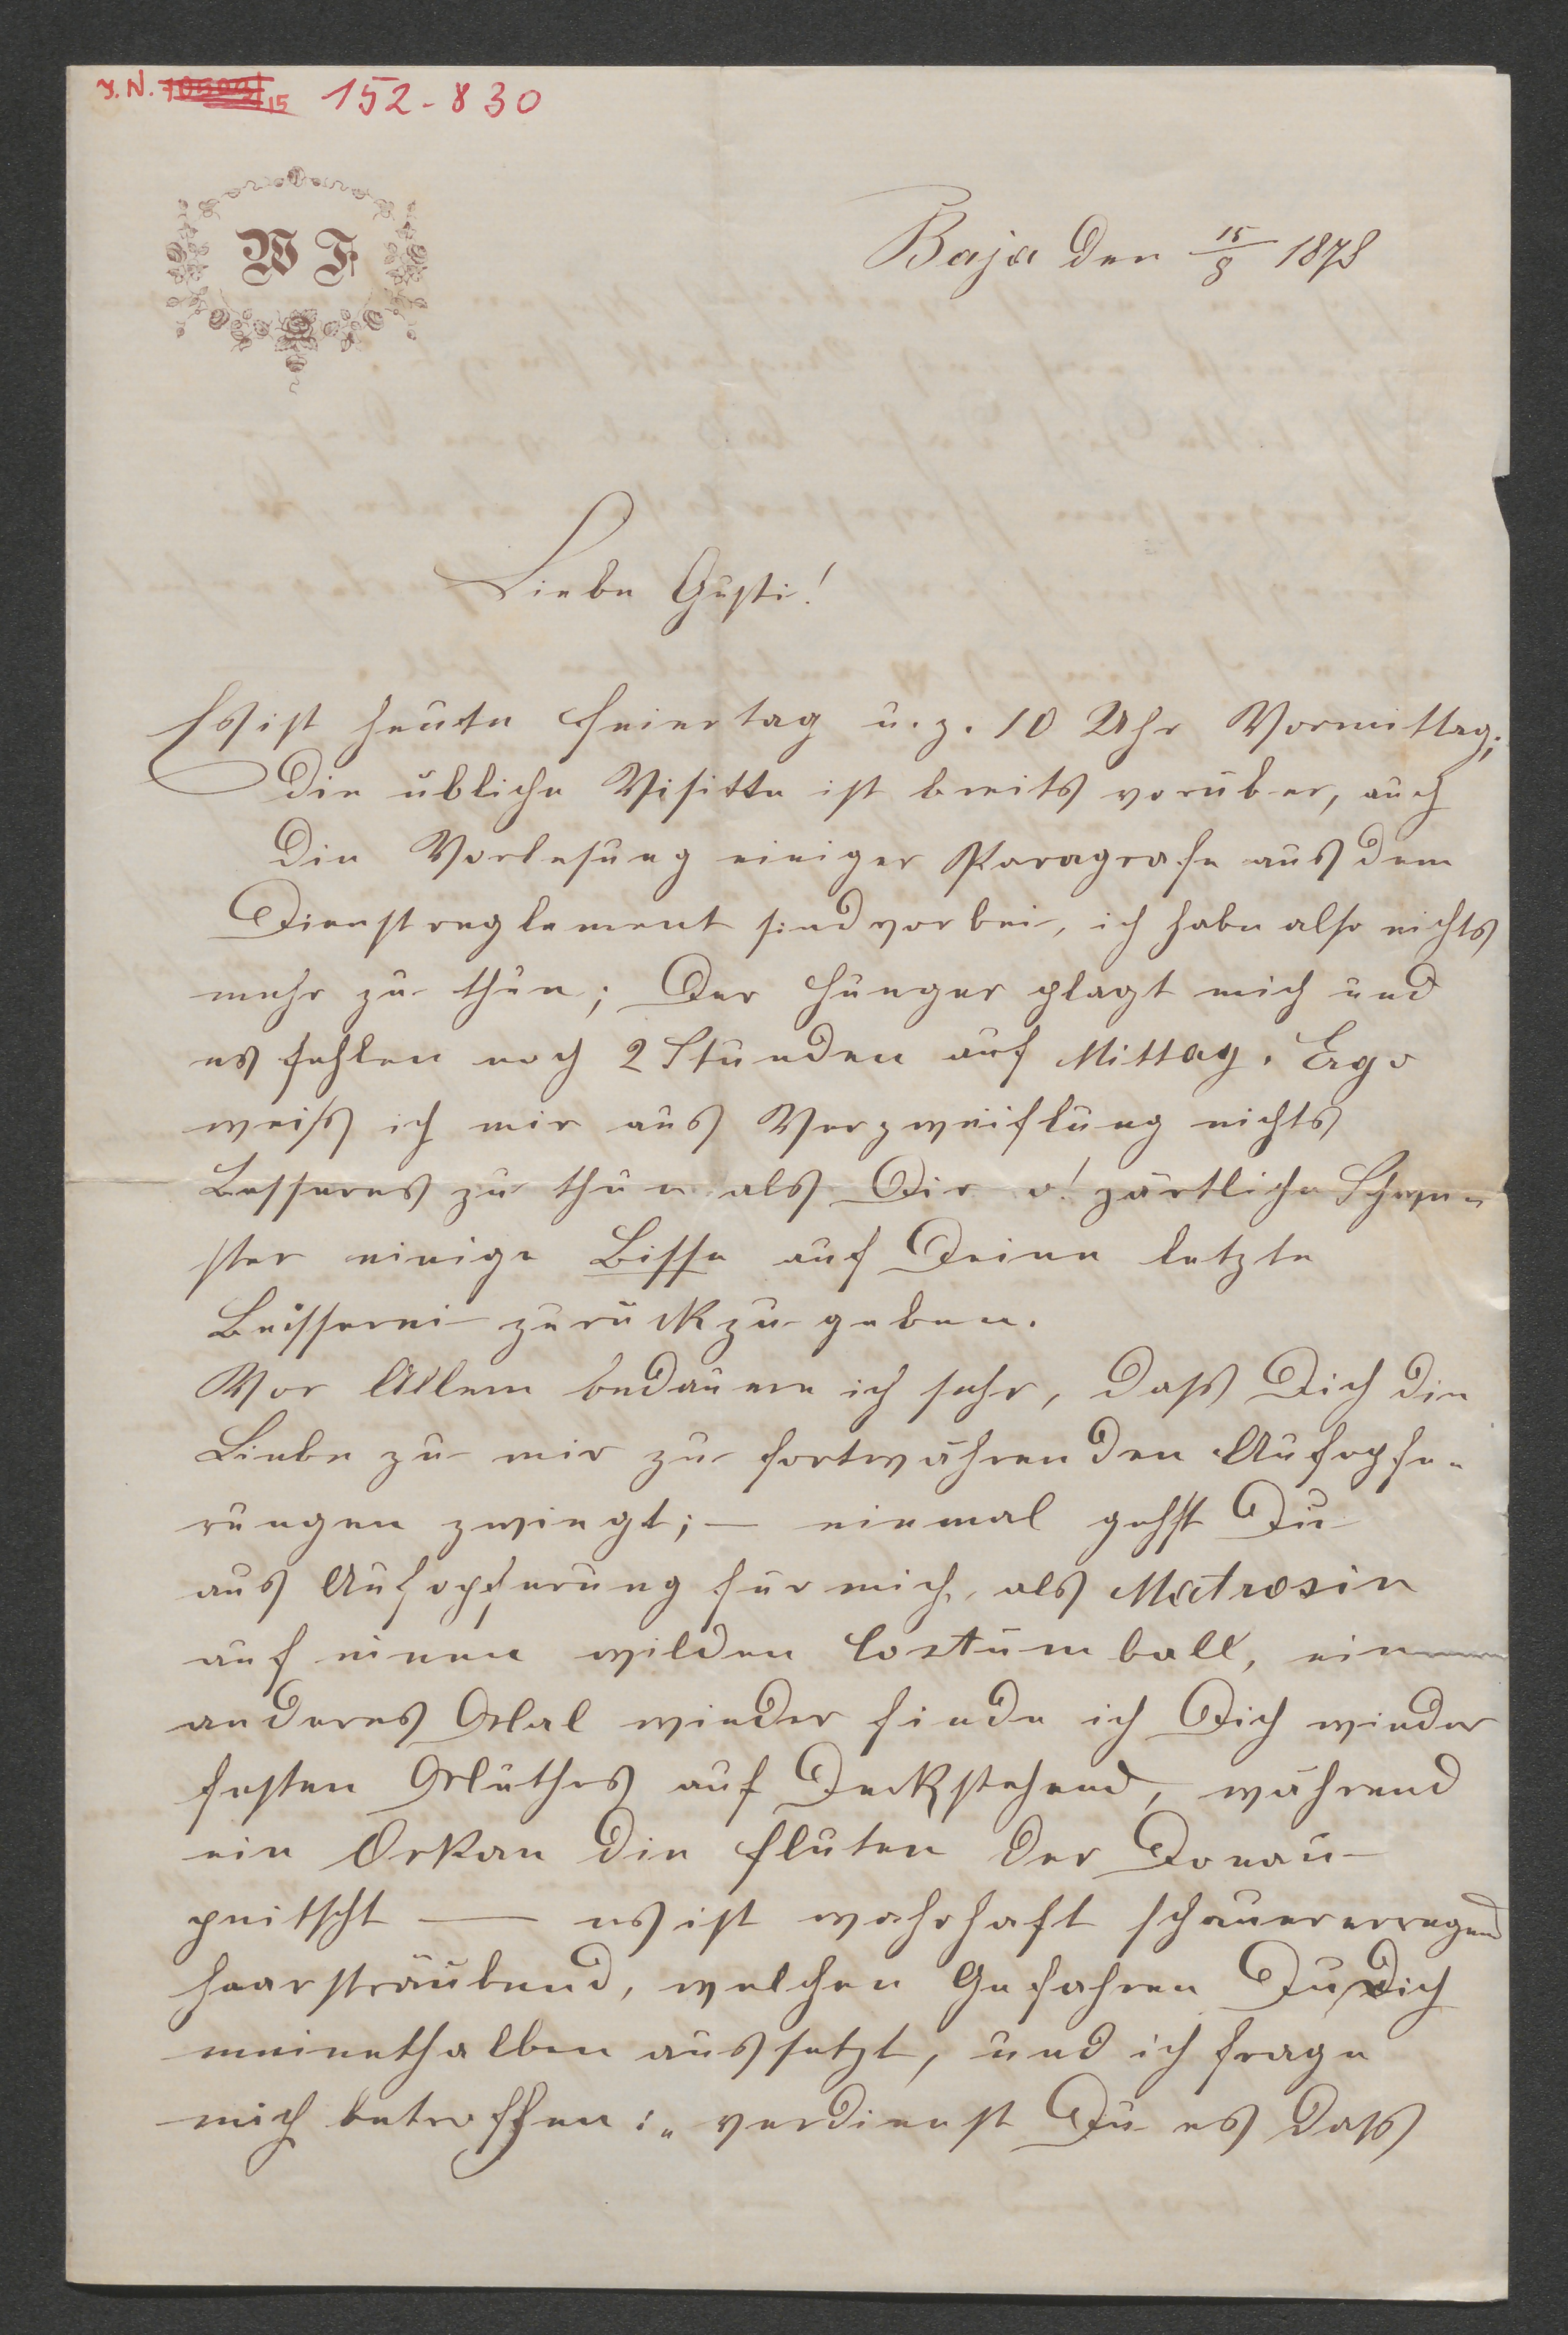 J. N. 15 152-830
W F
Baja den 15/8 1878
Liebe Gusti!
Es ist heute Feiertag u. z. 10 Uhr Vormittag;
die übliche Visitte ist breits vorüber, auch
die Vorlesung einiger Paragrafe aus dem
Dienstreglement sind vorbei, ich habe also nichts
mehr zu thun; Der Hunger plagt mich und
es fehlen noch 2 Stunden auf Mittag. Ergo
weiß ich mir aus Verzweiflung nichts
Besseres zu thun als Dir o! zärtliche Schwe-
ster einige Bisse auf Deine letzte
Beisserei zurückzugeben.
Vor Allem bedauere ich sehr, daß Dich die
Liebe zu mir zu fortwährenden Aufopfe-
rungen zwingt; — einmal gehst Du
aus Aufopferung für mich, als Matrosin
auf einen wilden Costümball, ein
anderes Mal wieder finde ich Dich wieder
festen Muthes auf Deck stehend, während
ein Orkan die Fluten der Donau
peitscht — es ist wahrhaft schauererregend
haarsträubend, welchen Gefahren Du Dich
meinethalben aussetzt, und ich frage
mich betroffen: „verdienst Du es daß